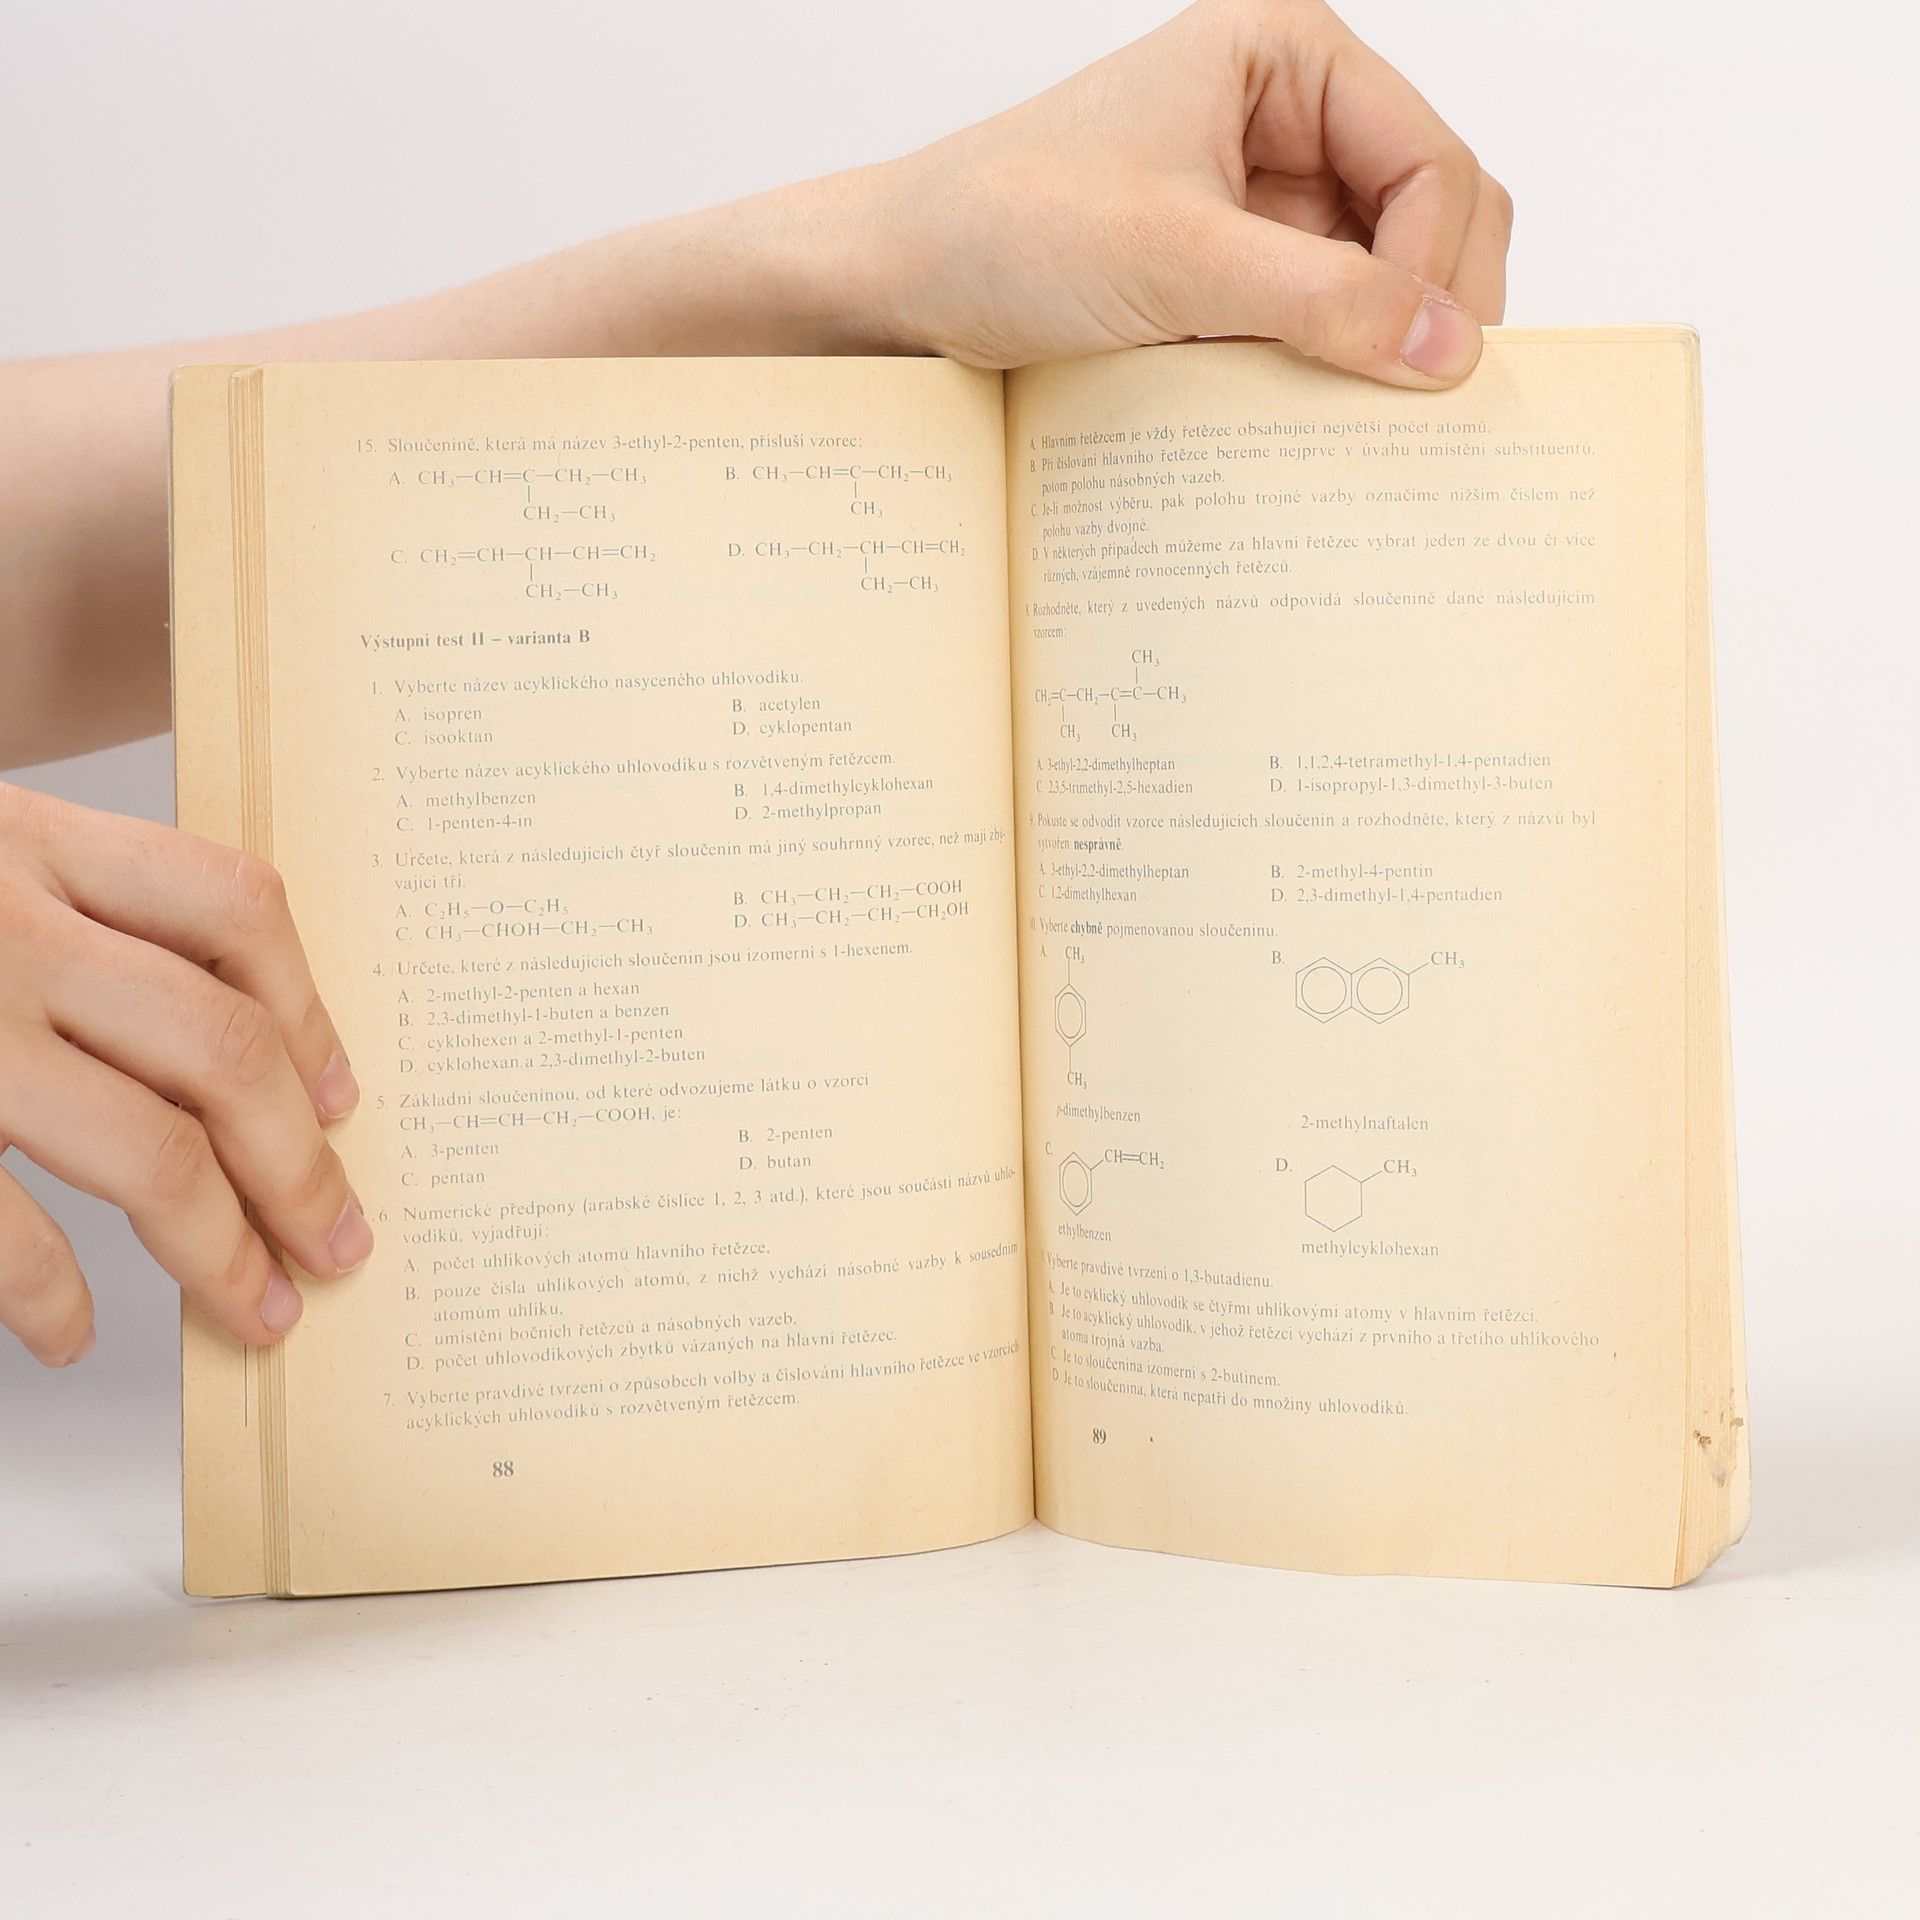 15. Sloučenině, která má název 3-ethyl-2-penten, přísluší vzorec:
A. CH₃—CH=C—CH₂—CH₃
CH₂—CH₃
B. CH₃—CH=C—CH₂—CH₃
CH₃
C. CH₂=CH—CH—CH=CH₂
CH₂—CH₃
D. CH₃—CH₂—CH—CH=CH₂
CH₂—CH₃
Výstupní test II – varianta B
1. Vyberte název acyklického nasyceného uhlovodíku.
A. isopren
B. acetylen
C. isooktan
D. cyklopentan
2. Vyberte název acyklického uhlovodíku s rozvětveným řetězcem.
A. methylbenzen
B. 1,4-dimethylcyklohexan
C. 1-penten-4-in
D. 2-methylpropan
3. Určete, která z následujících čtyř sloučenin má jiný souhrnný vzorec, než mají zbý-
vající tři.
A. C₂H₅—O—C₂H₅
B. CH₃—CH₂—CH₂—COOH
C. CH₃—CHOH—CH₂—CH₃
D. CH₃—CH₂—CH₂—CH₂OH
4. Určete, které z následujících sloučenin jsou izomerní s 1-hexenem.
A. 2-methyl-2-penten a hexan
B. 2,3-dimethyl-1-buten a benzen
C. cyklohexen a 2-methyl-1-penten
D. cyklohexan a 2,3-dimethyl-2-buten
5. Základní sloučeninou, od které odvozujeme látku o vzorci
CH₃—CH=CH—CH₂—COOH, je:
A. 3-penten
B. 2-penten
C. pentan
D. butan
6. Numerické předpony (arabské číslice 1, 2, 3 atd.), které jsou součástí názvů uhlo-
vodíků, vyjadřují:
A. počet uhlíkových atomů hlavního řetězce,
B. pouze čísla uhlíkových atomů, z nichž vychází násobné vazby k sousedním
atomům uhlíku,
C. umístění bočních řetězců a násobných vazeb,
D. počet uhlovodíkových zbytků vázaných na hlavní řetězec.
7. Vyberte pravdivé tvrzení o způsobech volby a číslování hlavního řetězce ve vzorcích
acyklických uhlovodíků s rozvětveným řetězcem.
88
A. Hlavním řetězcem je vždy řetězec obsahující největší počet atomů.
B. Při číslování hlavního řetězce bereme nejprve v úvahu umístění substituentů,
potom polohu násobných vazeb.
C. Je-li možnost výběru, pak polohu trojné vazby označíme nižším číslem než
polohu vazby dvojné.
D. V některých případech můžeme za hlavní řetězec vybrat jeden ze dvou či více
různých, vzájemně rovnocenných řetězců.
8. Rozhodněte, který z uvedených názvů odpovídá sloučenině dané následujícím
vzorcem:
CH₃
CH₂=C—CH₂—C=C—CH₃
CH₃ CH₃
A. 3-ethyl-2,2-dimethylheptan
B. 1,1,2,4-tetramethyl-1,4-pentadien
C. 2,3,5-trimethyl-2,5-hexadien
D. 1-isopropyl-1,3-dimethyl-3-buten
9. Pokuste se odvodit vzorce následujících sloučenin a rozhodněte, který z názvů byl
vytvořen nesprávně.
A. 3-ethyl-2,2-dimethylheptan
B. 2-methyl-4-pentin
C. 1,2-dimethylhexan
D. 2,3-dimethyl-1,4-pentadien
10. Vyberte chybně pojmenovanou sloučeninu.
A. CH₃
CH₃
p-dimethylbenzen
B. CH₃
2-methylnaftalen
C. CH=CH₂
ethylbenzen
D. CH₃
methylcyklohexan
Vyberte pravdivé tvrzení o 1,3-butadienu.
A. Je to cyklický uhlovodík se čtyřmi uhlíkovými atomy v hlavním řetězci.
B. Je to acyklický uhlovodík, v jehož řetězci vychází z prvního a třetího uhlíkového
atomu trojná vazba.
C. Je to sloučenina izomerní s 2-butinem.
D. Je to sloučenina, která nepatří do množiny uhlovodíků.
89